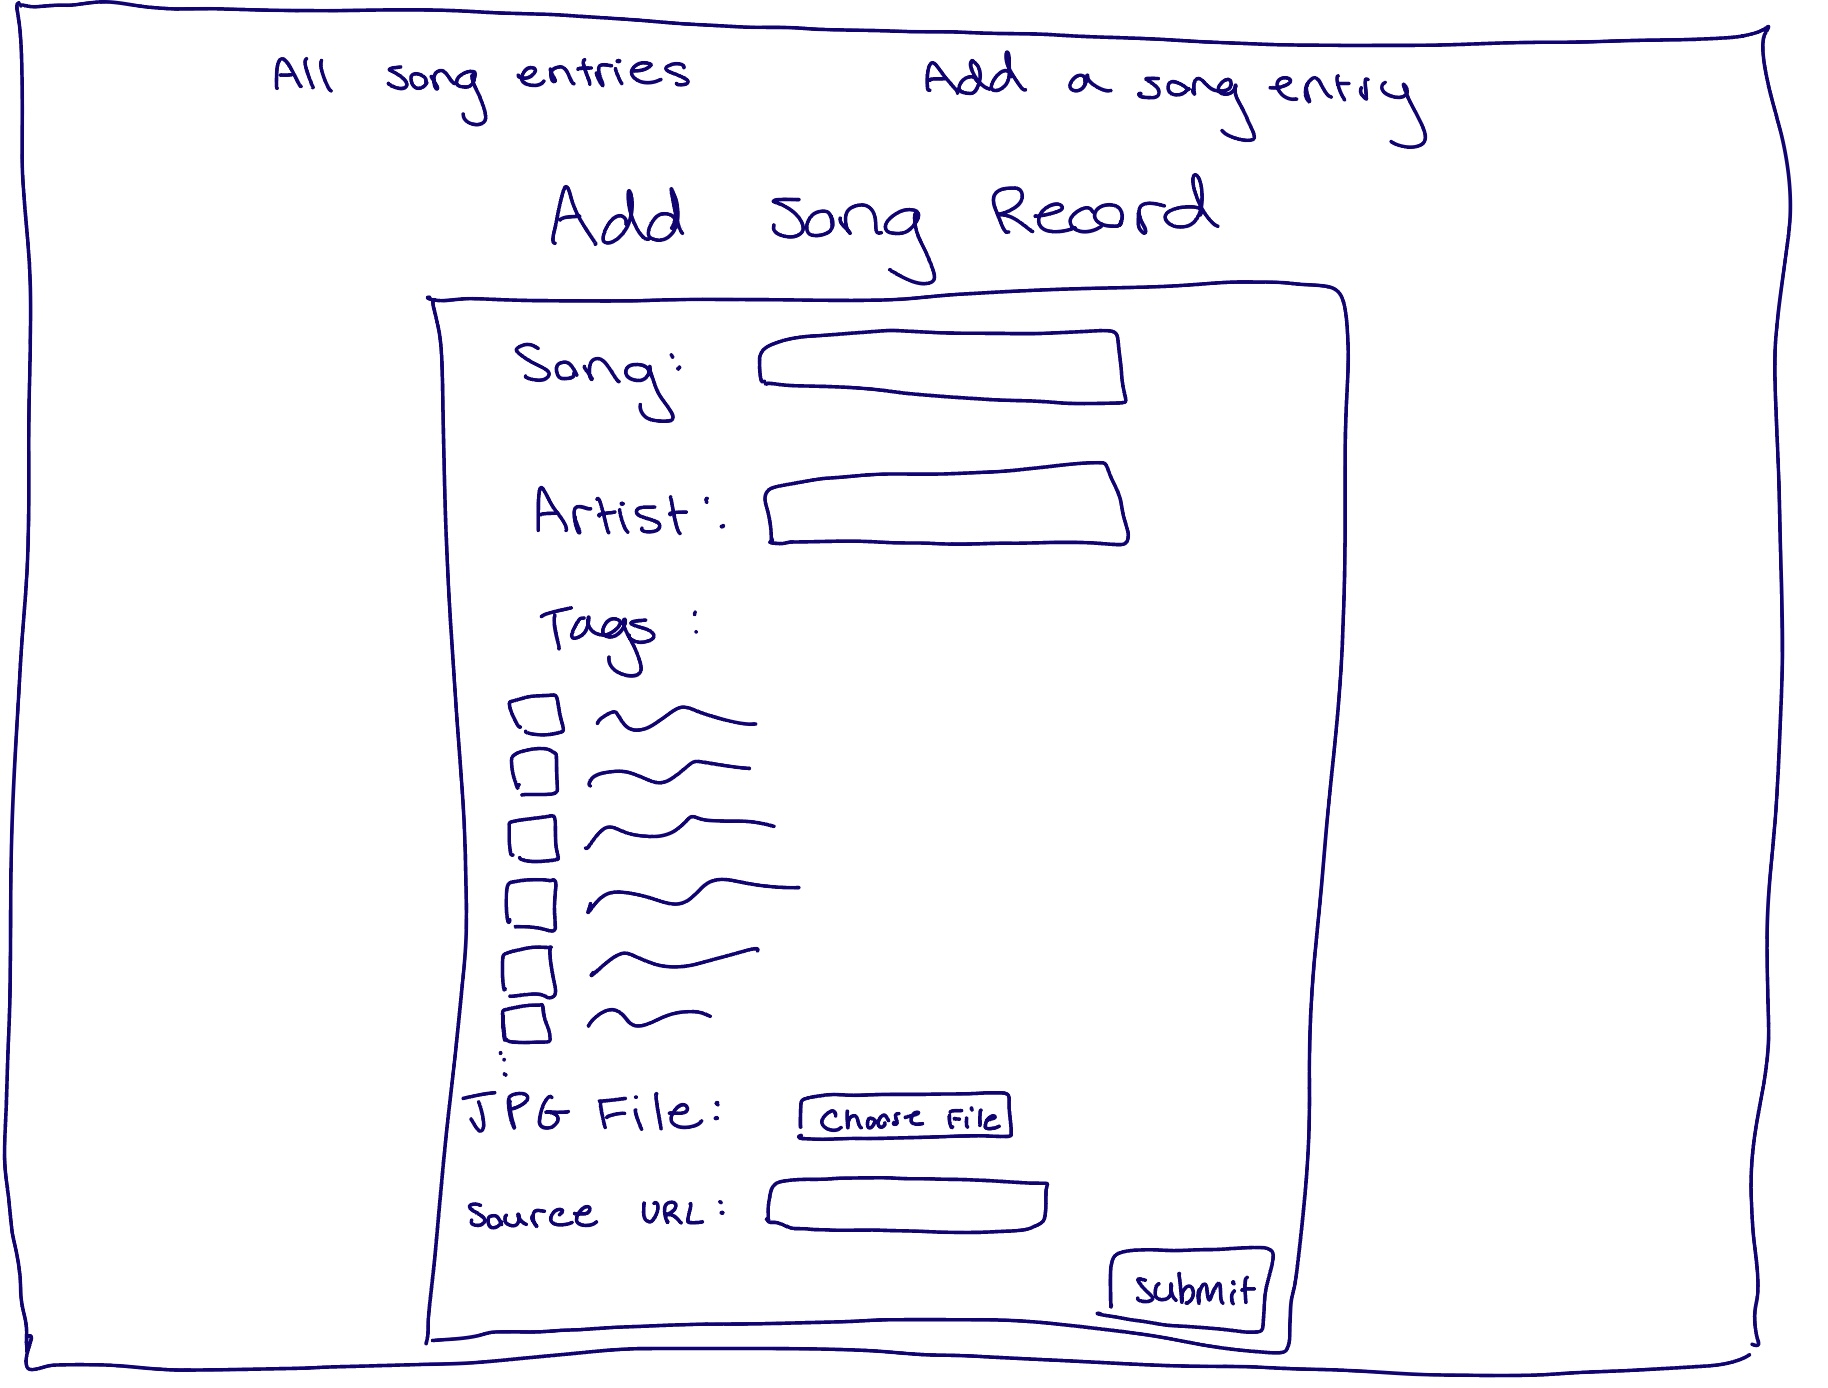 All song entries Add a song entry
Add Song Record
Song:
Artist:
Tags:
JPG File: Choose File
Source URL:
Submit